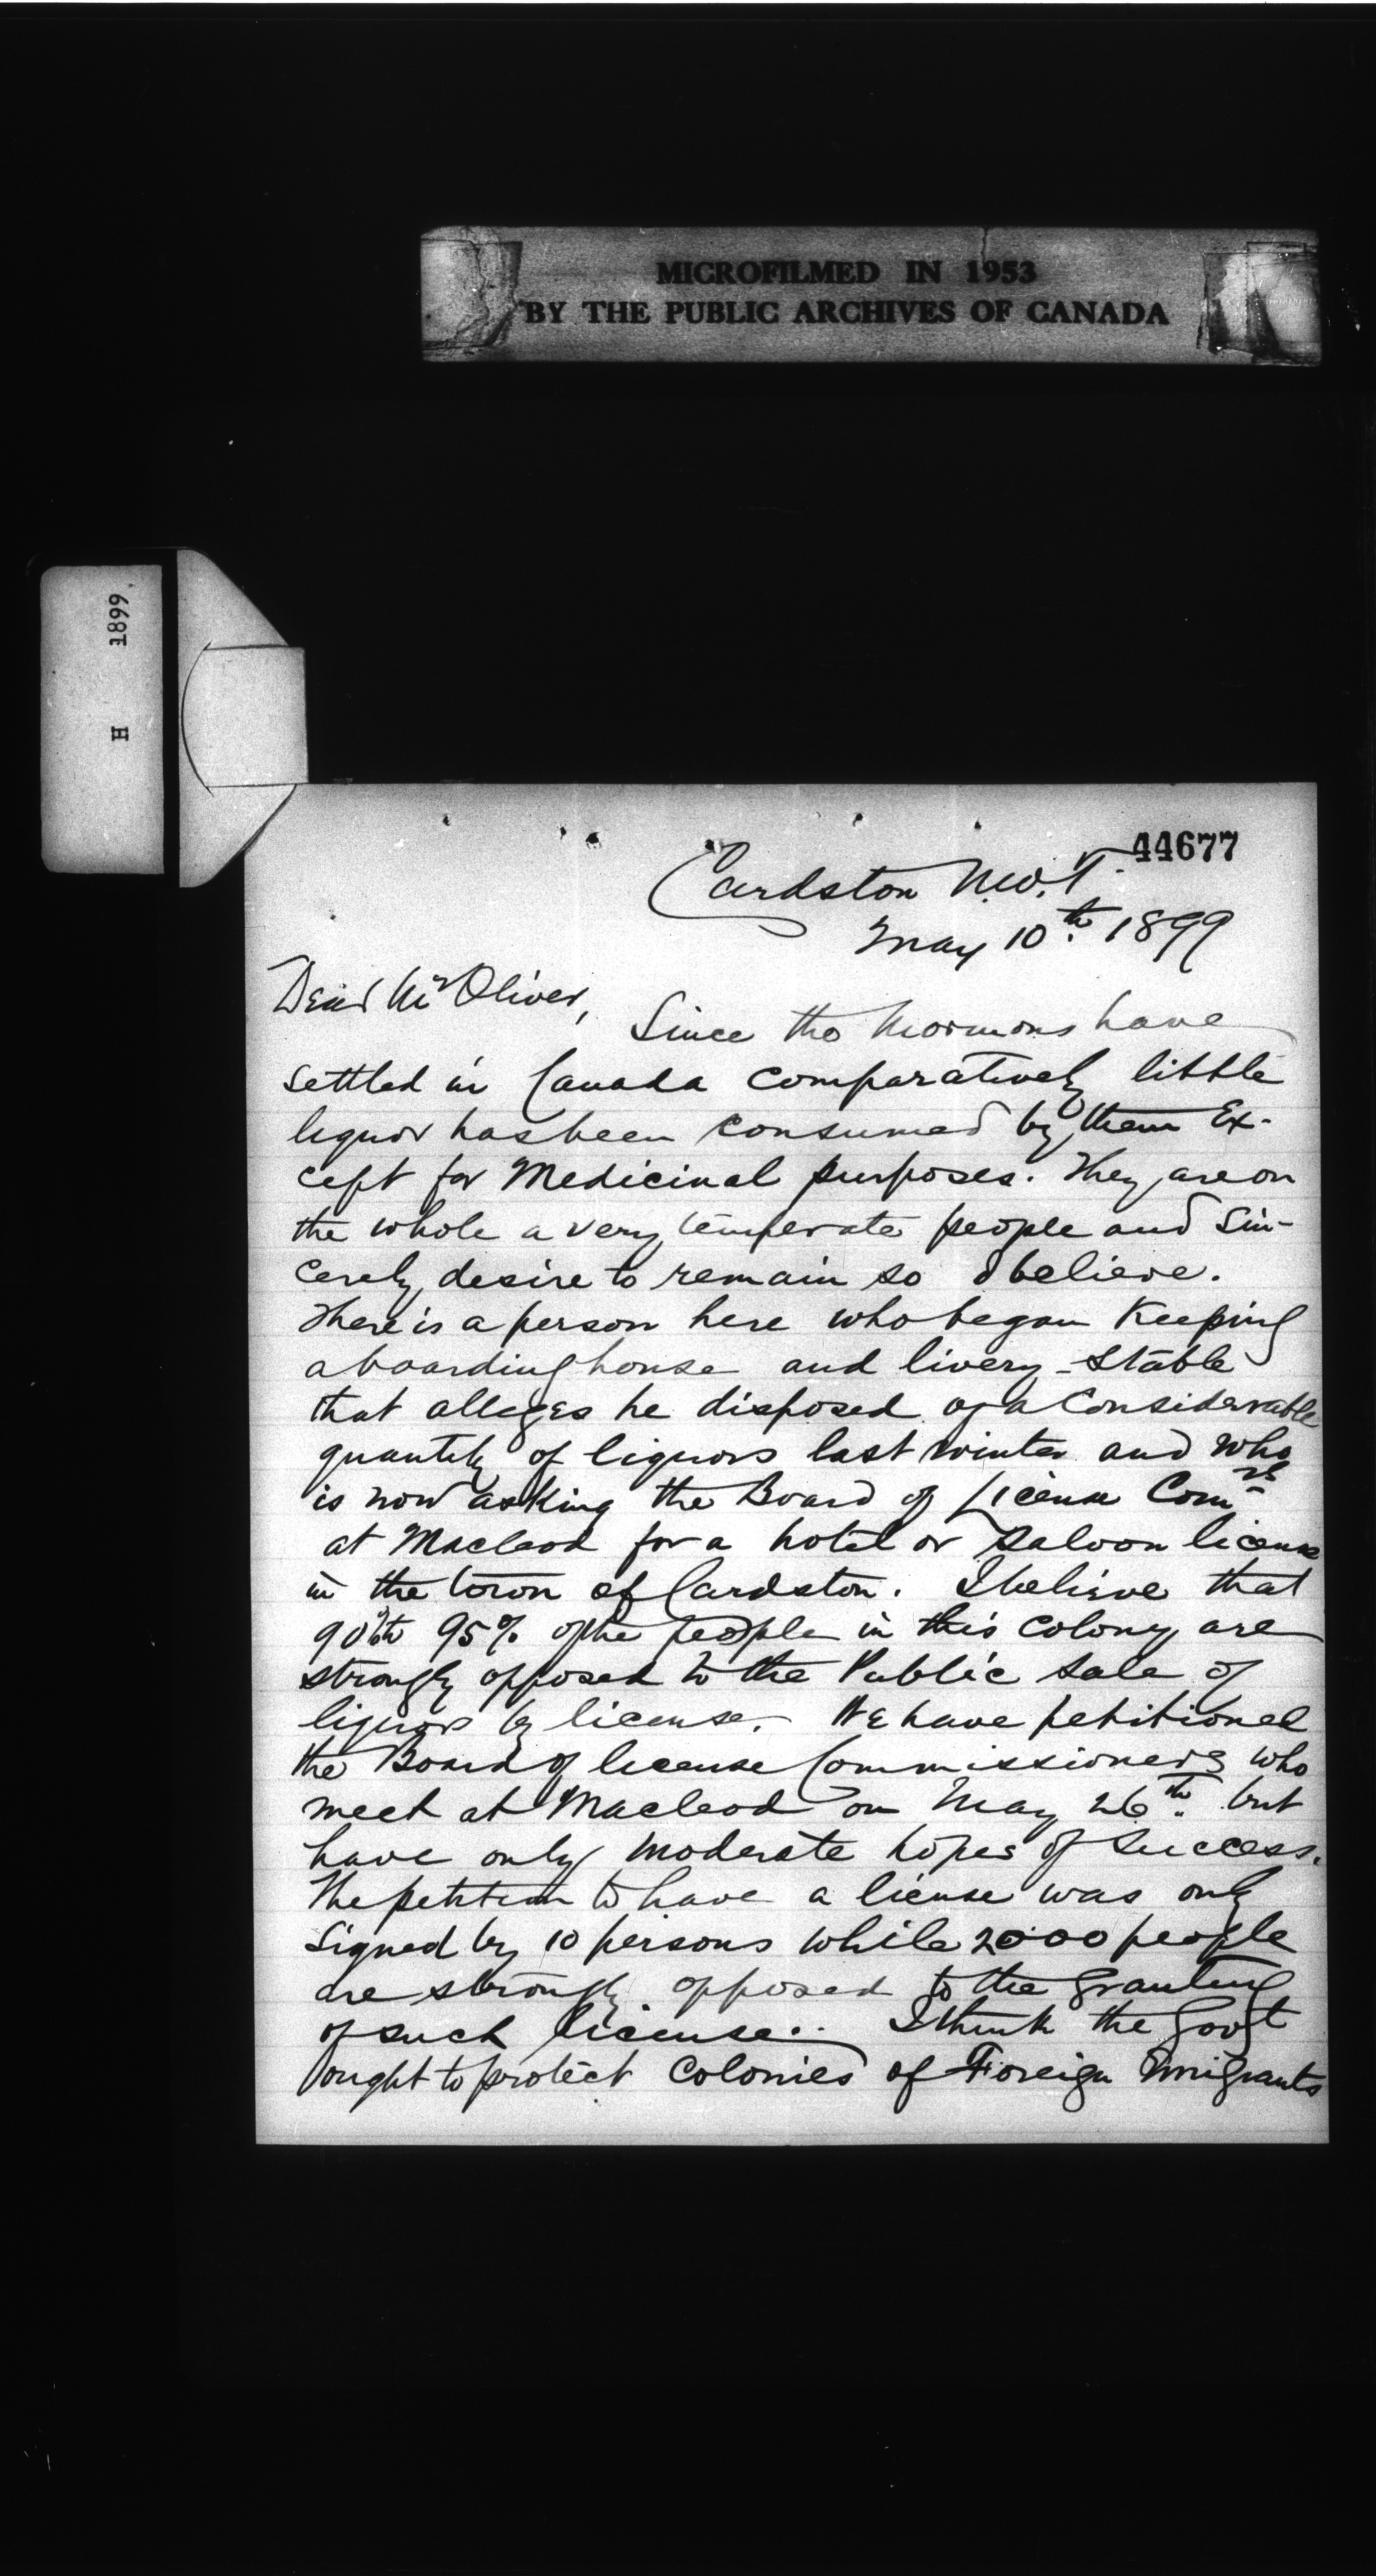 MICROFILMED IN 1953
BY THE PUBLIC ARCHIVES OF CANADA
H 1899
44677
Cardston N.W.T.
May 10th 1899
Dear Mr Oliver,
Since the Mormons have
settled in Canada comparatively little
liquor has been consumed by them Ex-
cept for Medicinal purposes. They are on
the whole a very temperate people and Sin-
cerely desire to remain so I believe.
There is a person here who began Keeping
a boarding house and livery-stable
that alleges he disposed of a Considerable
quantity of liquors last winter and who
is now asking the Board of License Comrs
at Macleod for a hotel or saloon license
in the town of Cardston. I believe that
90 to 95% of the people in this colony are
strongly opposed to the Public sale of
liquors by license. We have petitioned
the Board of license Commissioners who
meet at Macleod on May 26th but
have only moderate hopes of success.
The petition to have a license was only
Signed by 10 persons while 2000 people
are strongly opposed to the granting
of such license. I think the Govt
ought to protect Colonies of Foreign Emigrants